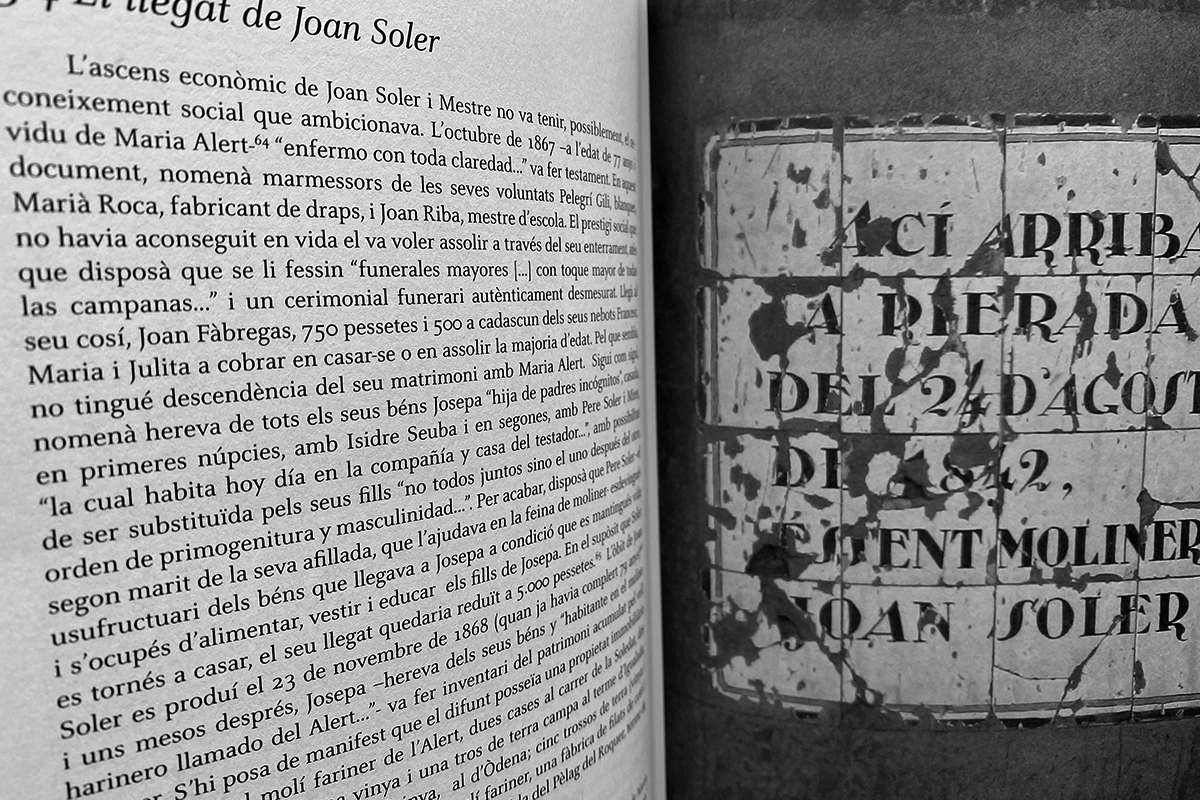 El llegat de Joan Soler
L'ascens econòmic de Joan Soler i Mestre no va tenir, possiblement, el re-
coneixement social que ambicionava. L'octubre de 1867 –a l'edat de 77 anys i
vidu de Maria Alert-⁶⁴ “enfermo con toda claredad...” va fer testament. En aquest
document, nomenà marmessors de les seves voluntats Pelegrí Gili, blanquer,
Marià Roca, fabricant de draps, i Joan Riba, mestre d'escola. El prestigi social que
no havia aconseguit en vida el va voler assolir a través del seu enterrament, atès
que disposà que se li fessin “funerales mayores [...] con toque mayor de todas
las campanas...” i un cerimonial funerari autènticament desmesurat. Llegà al
seu cosí, Joan Fàbregas, 750 pessetes i 500 a cadascun dels seus nebots Francesc,
Maria i Julita a cobrar en casar-se o en assolir la majoria d'edat. Pel que sembla,
no tingué descendència del seu matrimoni amb Maria Alert. Sigui com sigui,
nomenà hereva de tots els seus béns Josepa “hija de padres incógnitos”, casada,
en primeres núpcies, amb Isidre Seuba i en segones, amb Pere Soler i Miret,
“la cual habita hoy día en la compañía y casa del testador...”, amb possibilitat
de ser substituïda pels seus fills “no todos juntos sino el uno después del otro
orden de primogenitura y masculinidad...”. Per acabar, disposà que Pere Soler -el
segon marit de la seva afillada, que l'ajudava en la feina de moliner- esdevingués
usufructuari dels béns que llegava a Josepa a condició que es mantingués vidu
i s'ocupés d'alimentar, vestir i educar els fills de Josepa. En el supòsit que Soler
es tornés a casar, el seu llegat quedaria reduït a 5.000 pessetes.⁶⁵ L'òbit de Joan
Soler es produí el 23 de novembre de 1868 (quan ja havia complert 79 anys)
i uns mesos després, Josepa –hereva dels seus béns y “habitante en el molino
harinero llamado del Alert...”- va fer inventari del patrimoni acumulat pel vell
S'hi posa de manifest que el difunt posseïa una propietat immobiliària
molí fariner de l'Alert, dues cases al carrer de la Soledat,
vinya i una tros de terra campa al terme d'Igualada
al d'Òdena; cinc trossos de terra
fariner, una fàbrica de filats de
del Pèlag del Roquet,
ACÍ ARRIBA
LA PIERADA
DEL 24 D'AGOST
DE 1842,
ESSENT MOLINER
JOAN SOLER